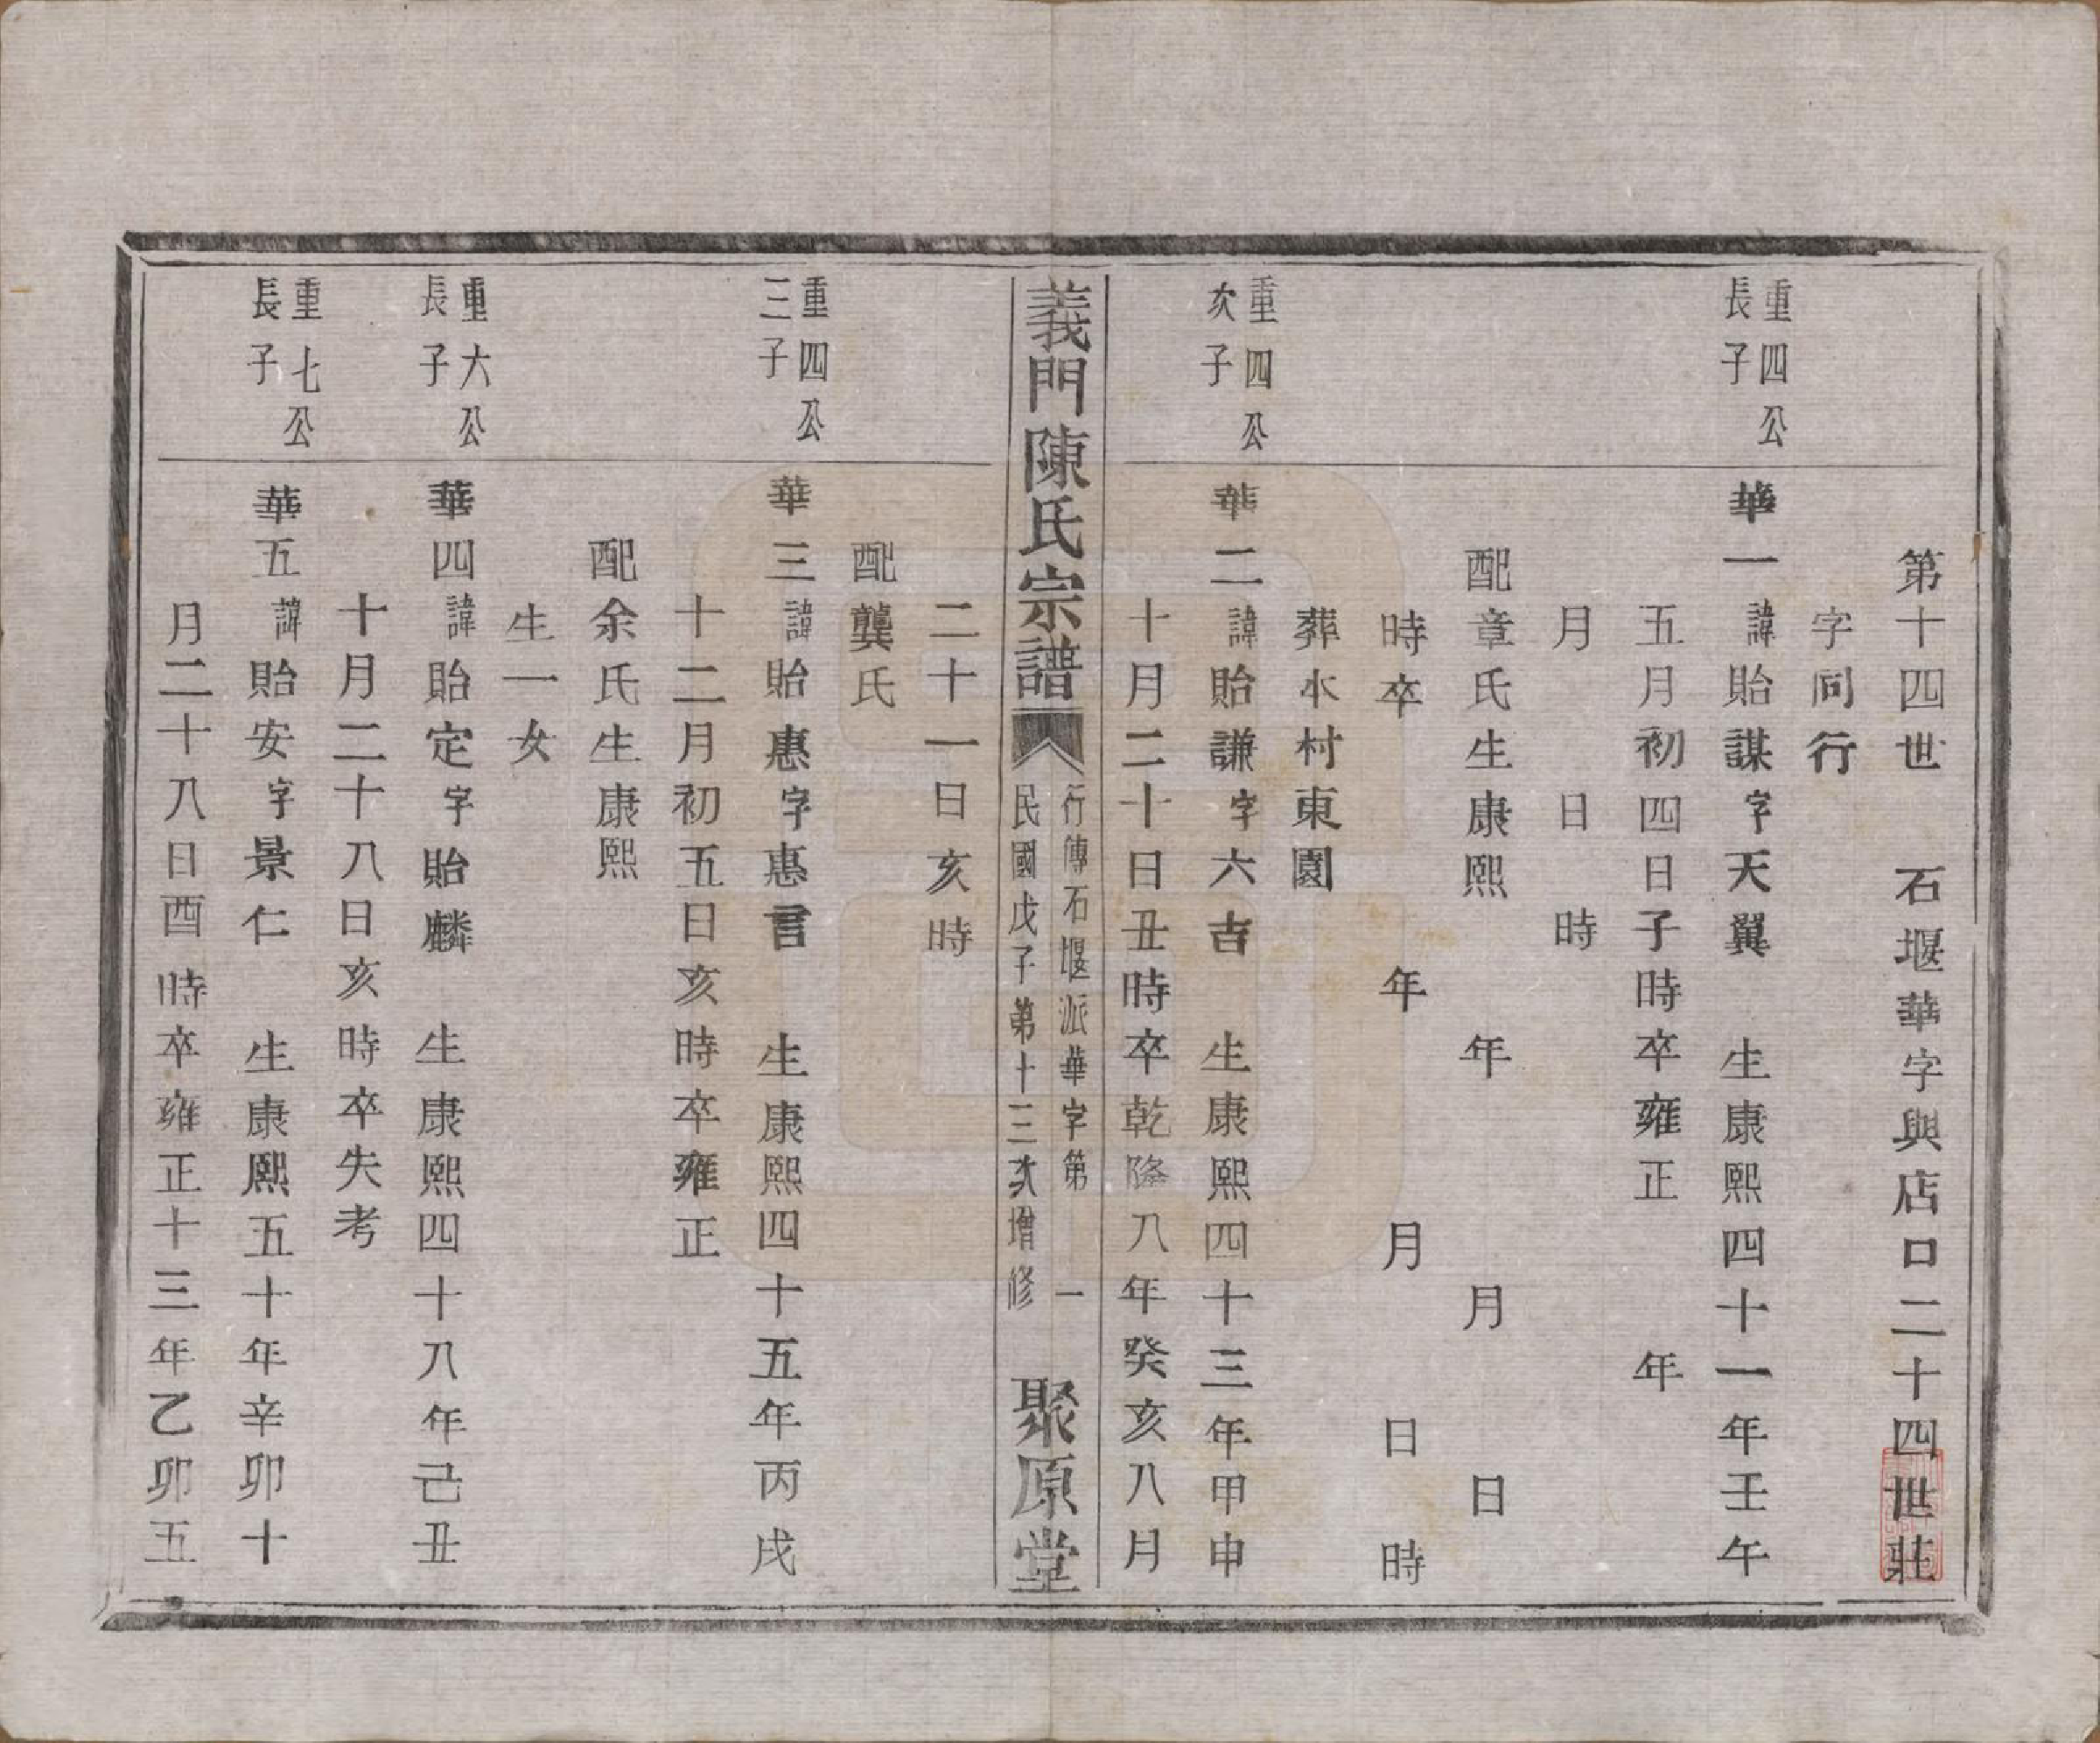 第十四世　石堰華字與店口二十四世莊
字同行
重四公
長子
華一諱貽謀字天翼　生康熙四十一年壬午
五月初四日子時卒雍正　年
月　日　時
配章氏生康熙　年　月　日
時卒　年　月　日　時
葬水村東園
重四公
次子
華二諱貽謙字六吉　生康熙四十三年甲申
十月二十日丑時卒乾隆八年癸亥八月
義門陳氏宗譜
行傳石堰派華字第　一
民國戊子第十三次增修
聚原堂
二十一日亥時
配龔氏
重四公
三子
華三諱貽惠字惠言　生康熙四十五年丙戌
十二月初五日亥時卒雍正
配余氏生康熙
生一女
重六公
長子
華四諱貽定字貽麟　生康熙四十八年己丑
十月二十八日亥時卒失考
重七公
長子
華五諱貽安字景仁　生康熙五十年辛卯十
月二十八日酉時卒雍正十三年乙卯五